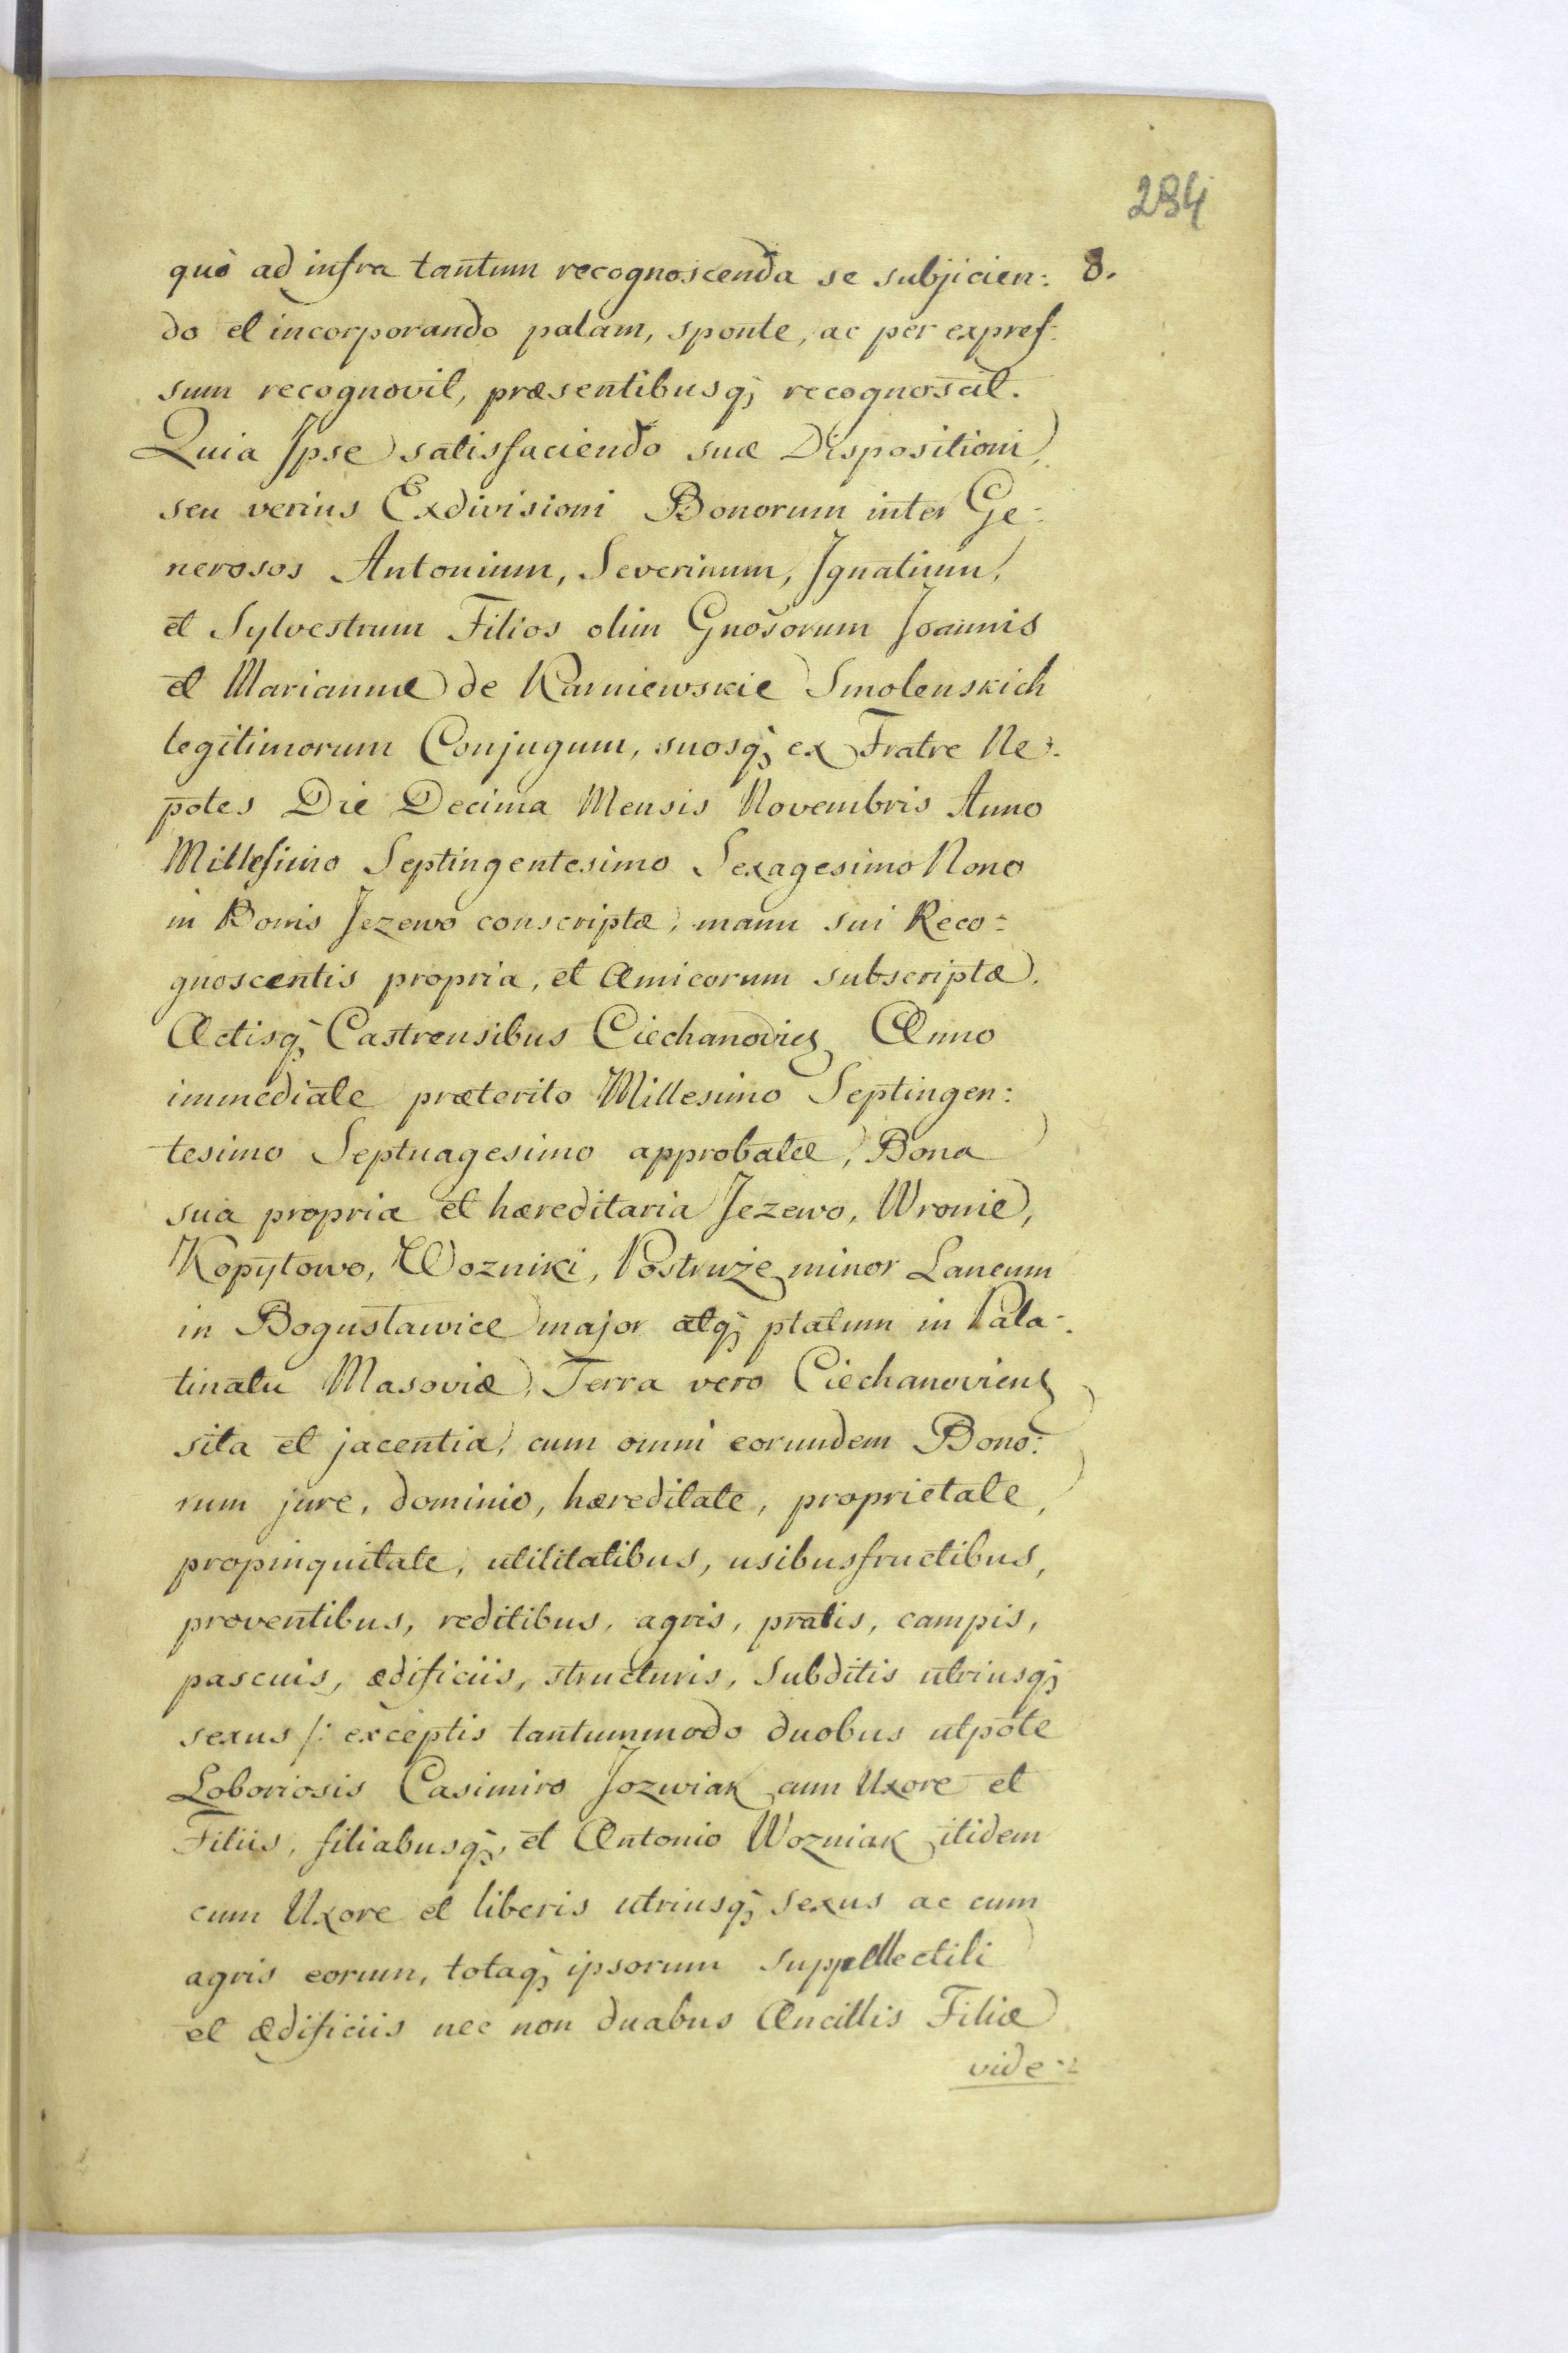 284
quò ad infra tantum recognoscenda se subjicien: 8.
do et incorporando palam, sponte, ac per expres:
sum recognovit, præsentibusq; recognoscit.
Quia Ipse satisfaciendo suæ Dispositioni,
seu verius Exdivisioni Bonorum inter Ge:
nerosos Antonium, Severinum, Ignatium,
et Sylvestrum Filios olim Gnosorum Joannis
et Mariannæ de Karniewskie Smolenskich
legitimorum Conjugum, suosq; ex Fratre Ne:
potes Die Decima Mensis Novembris Anno
Millesimo Septingentesimo Sexagesimo Nono
in Bonis Jezewo conscriptæ, manu sui Reco:
gnoscentis propria, et Amicorum subscriptæ.
Actisq; Castrensibus Ciechanovien Anno
immediate præterito Millesimo Septingen:
tesimo Septuagesimo approbatæ, Bona
sua propria et hæreditaria Jezewo, Wronie,
Kopytowo, Wozniki, Postruże minor Laneum
in Bogusławice major atq; ptatum in Pala:
tinatu Masoviæ, Terra vero Ciechanovien
sita et jacentia, cum omni eorundem Bono:
rum jure, dominio, hæreditate, proprietate,
propinquitate, utilitatibus, usibusfructibus,
proventibus, reditibus, agris, pratis, campis,
pascuis, ædificiis, structuris, Subditis utriusq;
sexus /: exceptis tantummodo duobus utpote
Loboriosis Casimiro Jozwiak cum Uxore et
Filiis, filiabusq;, et Antonio Wozniak itidem
cum Uxore et liberis utriusq; sexus ac cum
agris eorum, totaq; ipsorum suppellectili
et ædificiis nec non duabus Ancillis Filiæ
vide: